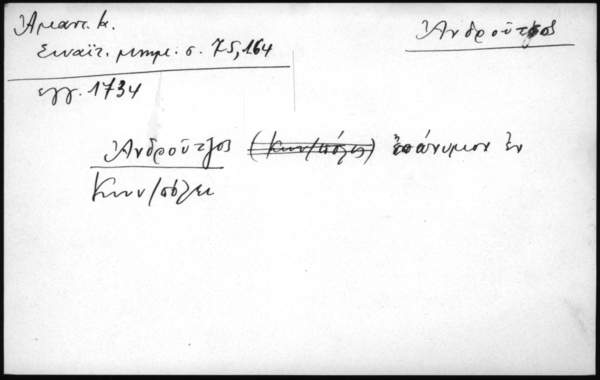 Ἀμαντ. Κ.
Σιναϊτ. μνημ. σ. 75,164
ἐγγ. 1734
Ἀνδροῦτσος
Ἀνδροῦτζος (Κων/πόλις) ἐπώνυμον ἐν
Κων/πόλει